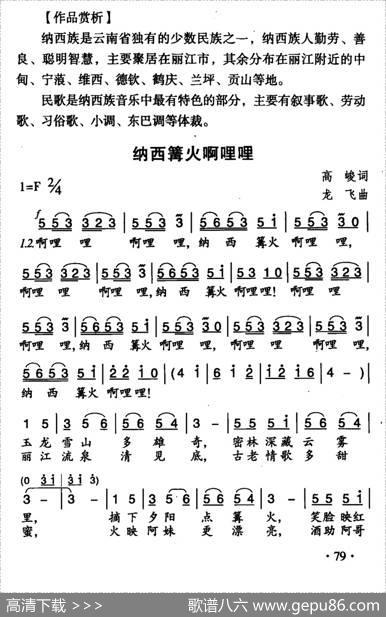 【作品赏析】
纳西族是云南省独有的少数民族之一，纳西族人勤劳、善
良、聪明智慧，主要聚居在丽江市，其余分布在丽江附近的中
甸、宁蒗、维西、德钦、鹤庆、兰坪、贡山等地。
民歌是纳西族音乐中最有特色的部分，主要有叙事歌、劳动
歌、习俗歌、小调、东巴调等体裁。
纳西篝火啊哩哩
高 峻词
1=F 2/4
龙 飞曲
f
5 5 3 3 2 3 | 5 5 3 3 | 5 6 5 3 5 i | 5 5 3 3 0 |
1.2.啊哩 哩 啊哩 哩, 纳 西 篝火 啊哩 哩,
5 5 3 3 2 3 | 5 5 3 3 | 5 6 5 3 5 i | 5 3 1 0 | 5 5 3 3 2 3 |
啊哩 哩 啊哩 哩, 纳 西 篝火 啊哩哩! 啊哩 哩
5 5 3 3 | 5 6 5 3 5 i | 5 5 3 3 0 | 5 5 3 3 2 3 | 5 5 3 3 |
啊哩 哩, 纳 西 篝火 啊哩 哩, 啊哩 哩 啊哩 哩,
5 6 5 3 5 i | 2 2 i 0 | (4 i | 6 i 2 | i 2 i 6 | 4 - ) |
纳 西 篝火 啊哩哩!
1 5 | 3 5 6 | 5 6 5 4 | 3 - | 5 5 5 i | 6 5 5 4 |
玉 龙 雪 山 多 雄 奇, 密林 深藏 云 雾
丽 江 流 泉 清 见 底, 古老 情歌 多 甜
(0 3 i | 3 i 3 )
3 - | 3 - | 1 5 | 3 5 6 | 5 6 5 4 | 3 - | 5 5 5 i |
里, 摘 下 夕 阳 点 篝 火, 笑脸 映红
蜜, 火 映 阿 妹 更 漂 亮, 酒助 阿哥
· 79 ·
高清下载 >>>
歌谱八六 www.gepu86.com